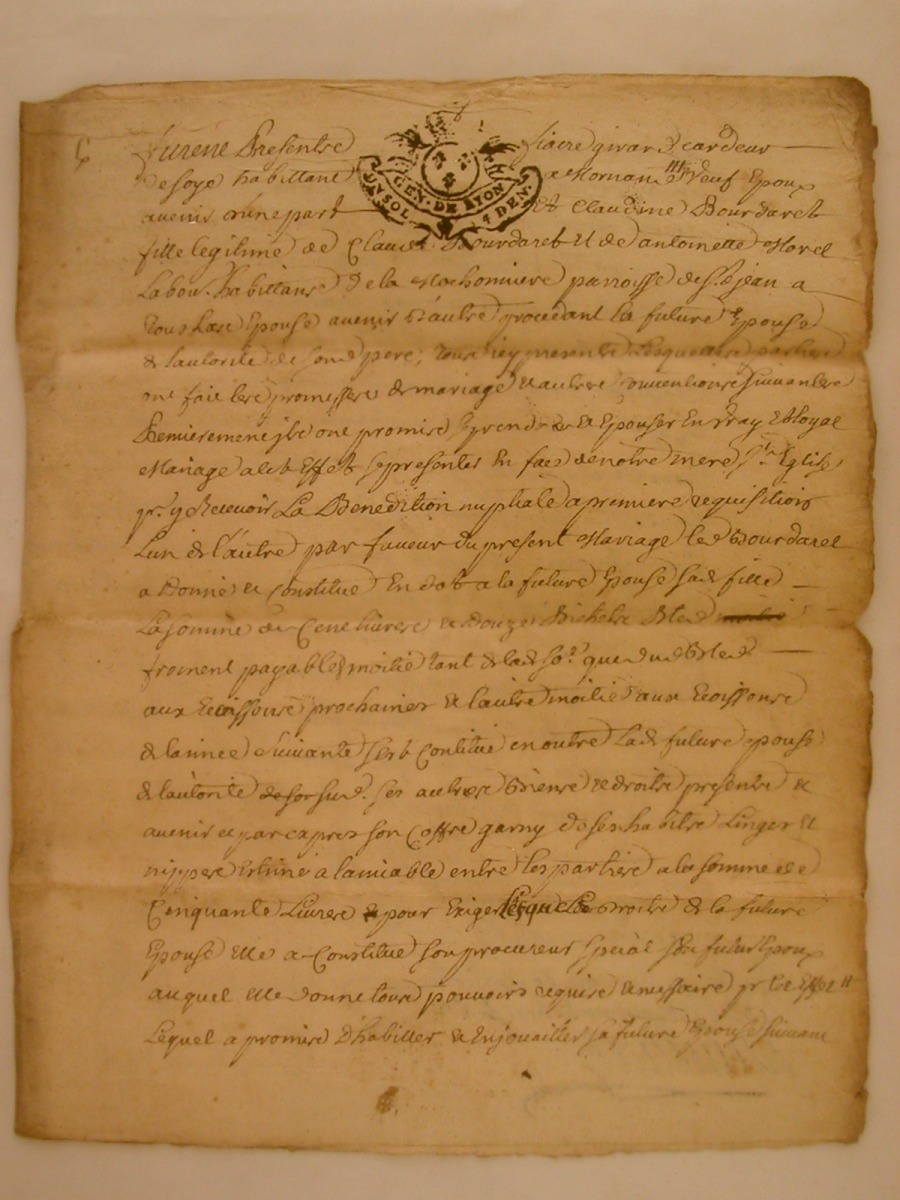 furent Presents fiacre girard cardeur
de soye habittant a Mornant veuf Epoux
GEN. DE LYON
UN SOL 4 DEN.
avenir d'une part Et Claudine Bourdaret
fille legitime de Claude Bourdaret et de antoinette Morel
Labour. habittans de la Rochonniere parroisse de St jean a
Touslas Epouse avenir d'autre procedant la future Epouse
de lautorité de son d pere; Tous icy presents Lesquelles parties
ont fait les promesses de mariage & autres conventions suivantes
Premierement ils ont promis se prendre & Epouser En vray & Loyal
Mariage a cet Effet se presenter En face de notre mere Ste Eglise
pr. y Recevoir La Benedition nuptiale a premiere requisition
Lun de l'autre par faveur du present Mariage led Bourdaret
a Donné et Constitué En dot a la future Epouse sad fille
La somme de Cent livres & douze Bichets Bled
froment payable moitié tant de lad so.e que dud Bled
aux Moissons prochaines & l'autre moitié aux Moissons
de lannee suivante sest Contitué en outre Lad future epouse
de lautorité de son sud. ses autres Biens & droits presents &
avenir et par expres son Coffre garny de ses habits Linges et
nippes Estimé a lamiable entre les parties a la somme de
Cinquante Livres & pour Exiger lesquels droits de la future
Epouse Elle a Constitué son procureur special son futur Epoux
auquel Elle donne tous pouvoirs requis & necessaire pr. cet Effet
Lequel a promis d'habiller & Enjouailler sa future Epouse suivant